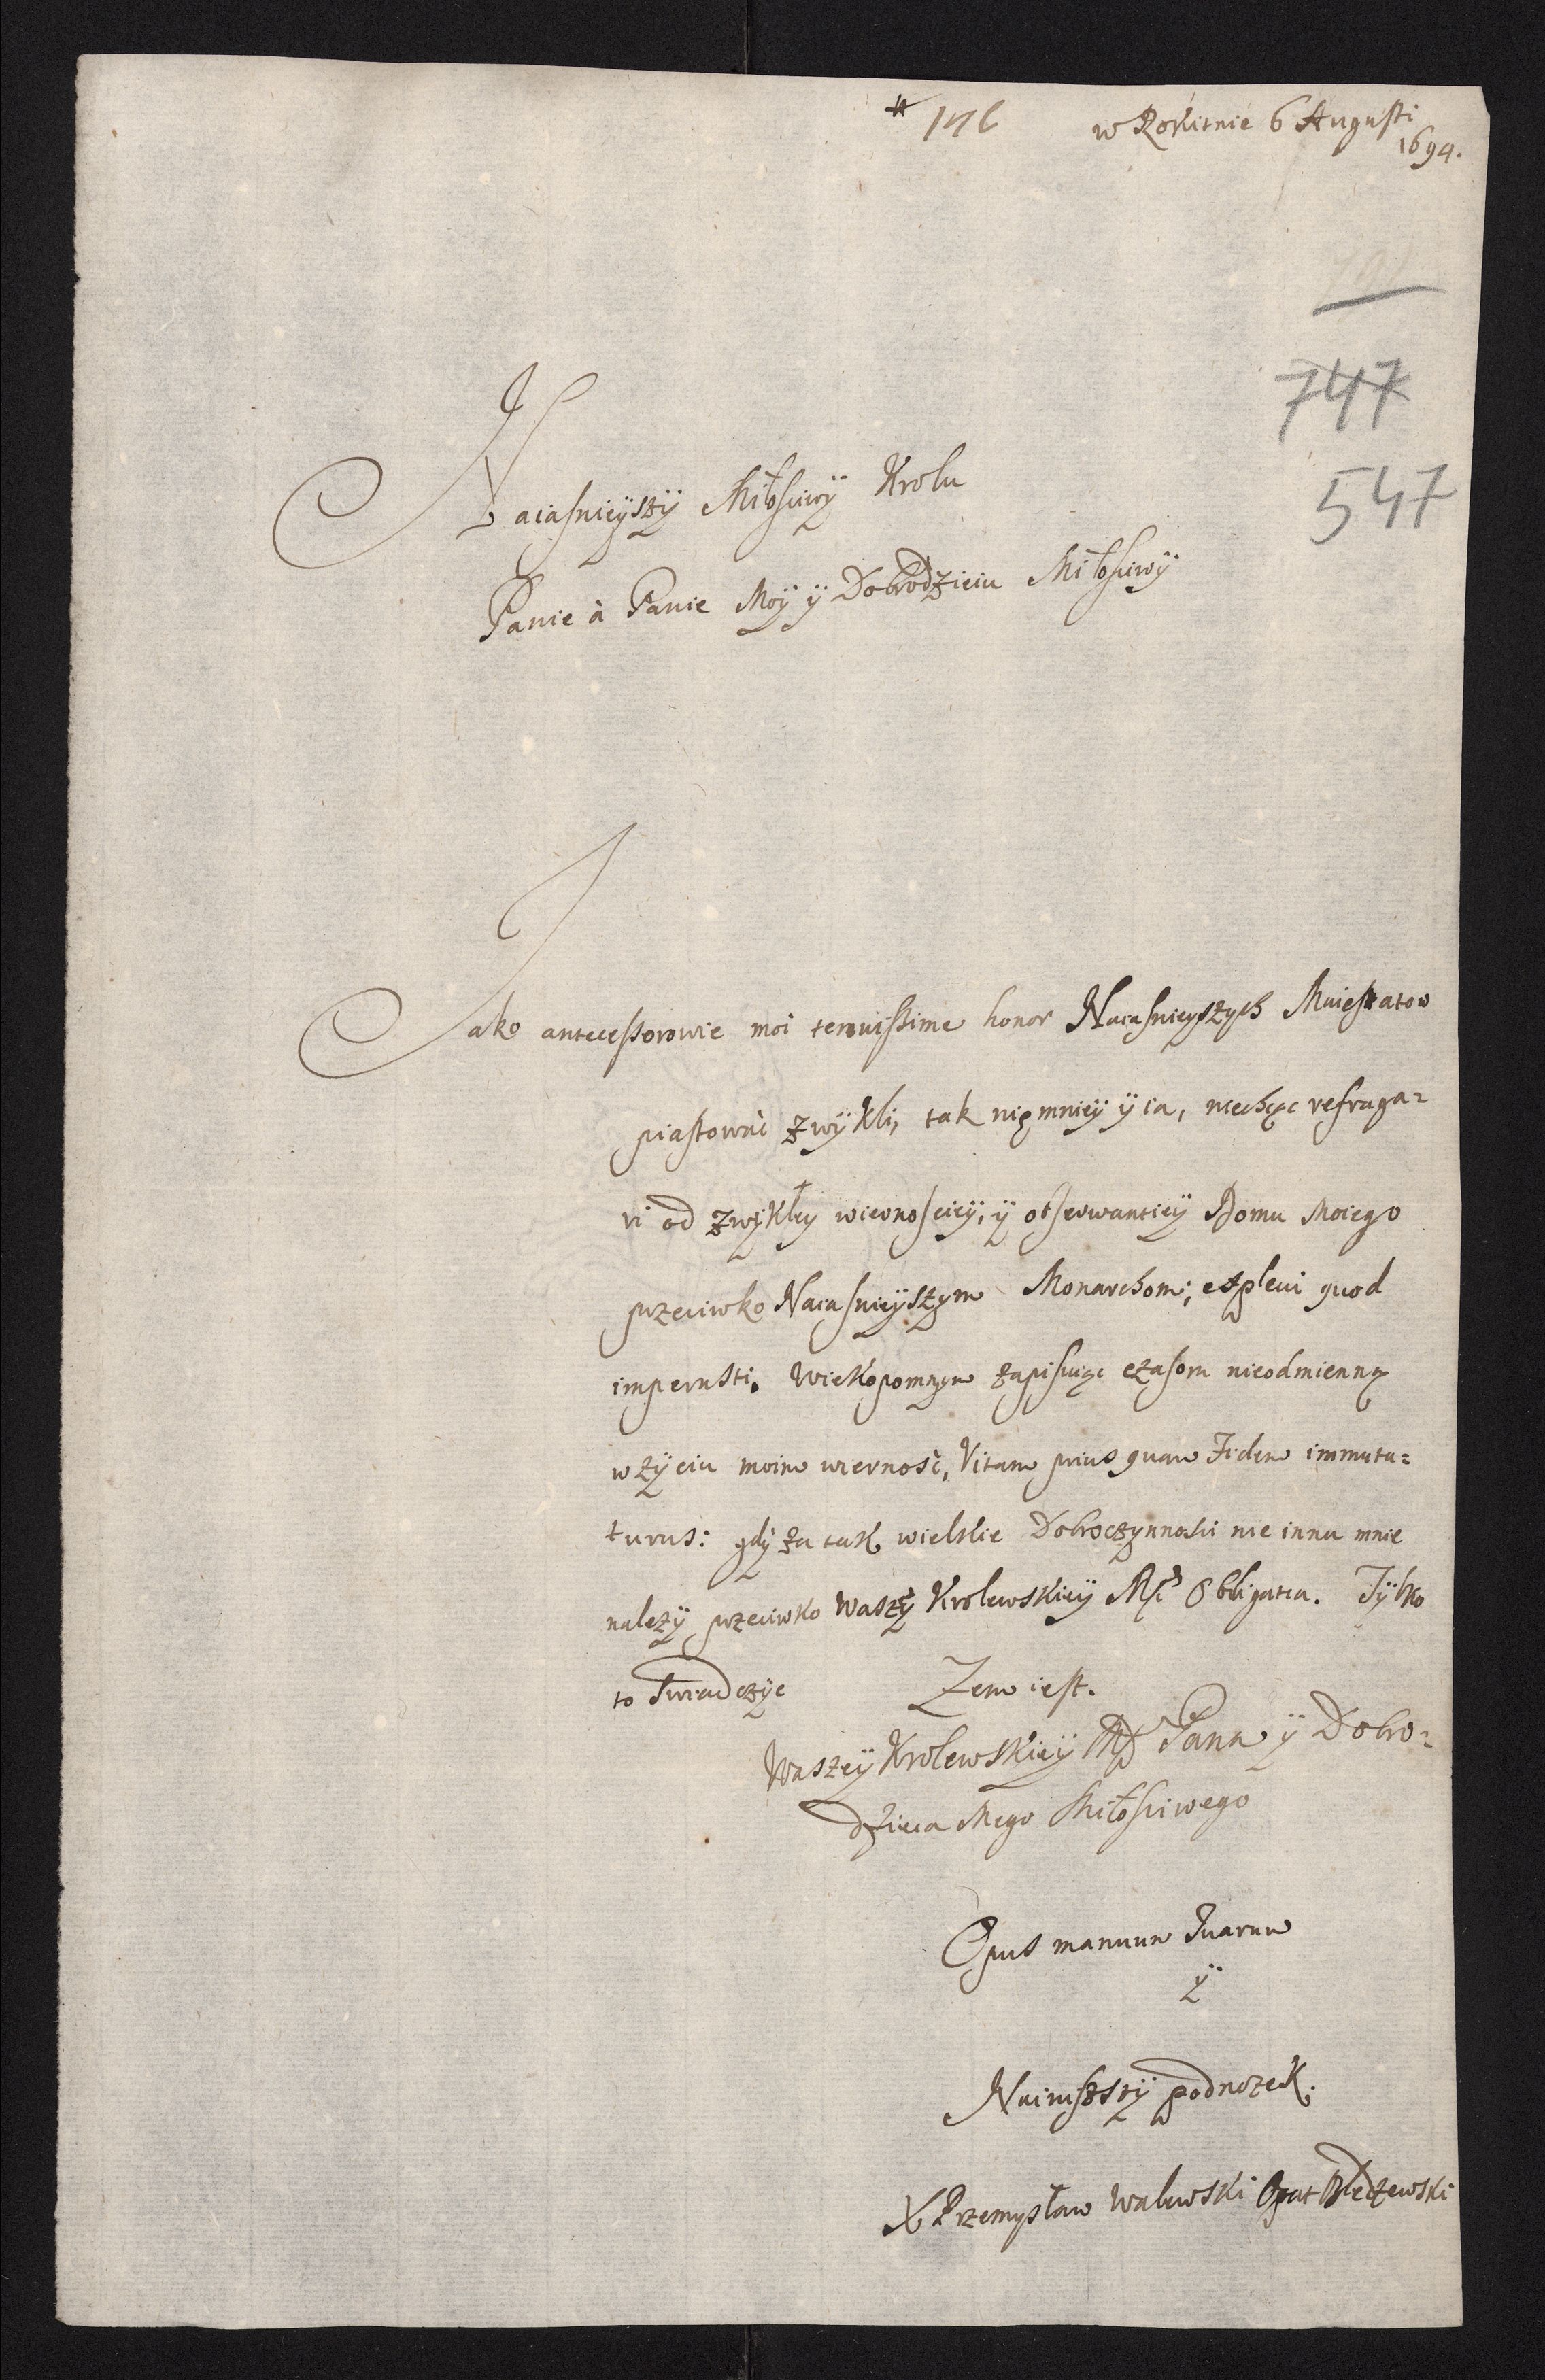 w Rokitnie 6 Augusti
1694.
747
547
Naiasnieyszÿ Miłosciwÿ Krolu
Panie à Panie Moÿ ÿ Dobrodzieiu Miłosciwÿ
Jako antecessorowie moi tenuissime honor Naiasnieyszych Maiestatow
piastowac zwÿkli, tak niemnieÿ ÿ ia, niechcąc refraga=
ri od zwÿkłey wiernoscieÿ, ÿ obserwantieÿ Domu Moiego
przeciwko Naiasnieÿszym Monarchom; expleui quod
imperasti. Wiekopomnym zapisuiąc czasom nieodmienną
w zÿciu moim wiernosc, Vitam prius quam Fidem immuta=
turus: gdÿ za tak wielkie Dobroczynnosci nie inna mnie
nalezÿ przeciwko Waszeÿ Krolewskieÿ Msci Obligatia. Tÿlko
to swiadczÿc Zem iest.
Waszeÿ Krolewskieÿ Msci Pana ÿ Dobro=
dzieia Mego Miłosciwego
Opus manuum Tuarum
ÿ
Nainiszszÿ podnozek.
X Przemysław Walewski Opat Bledzewski